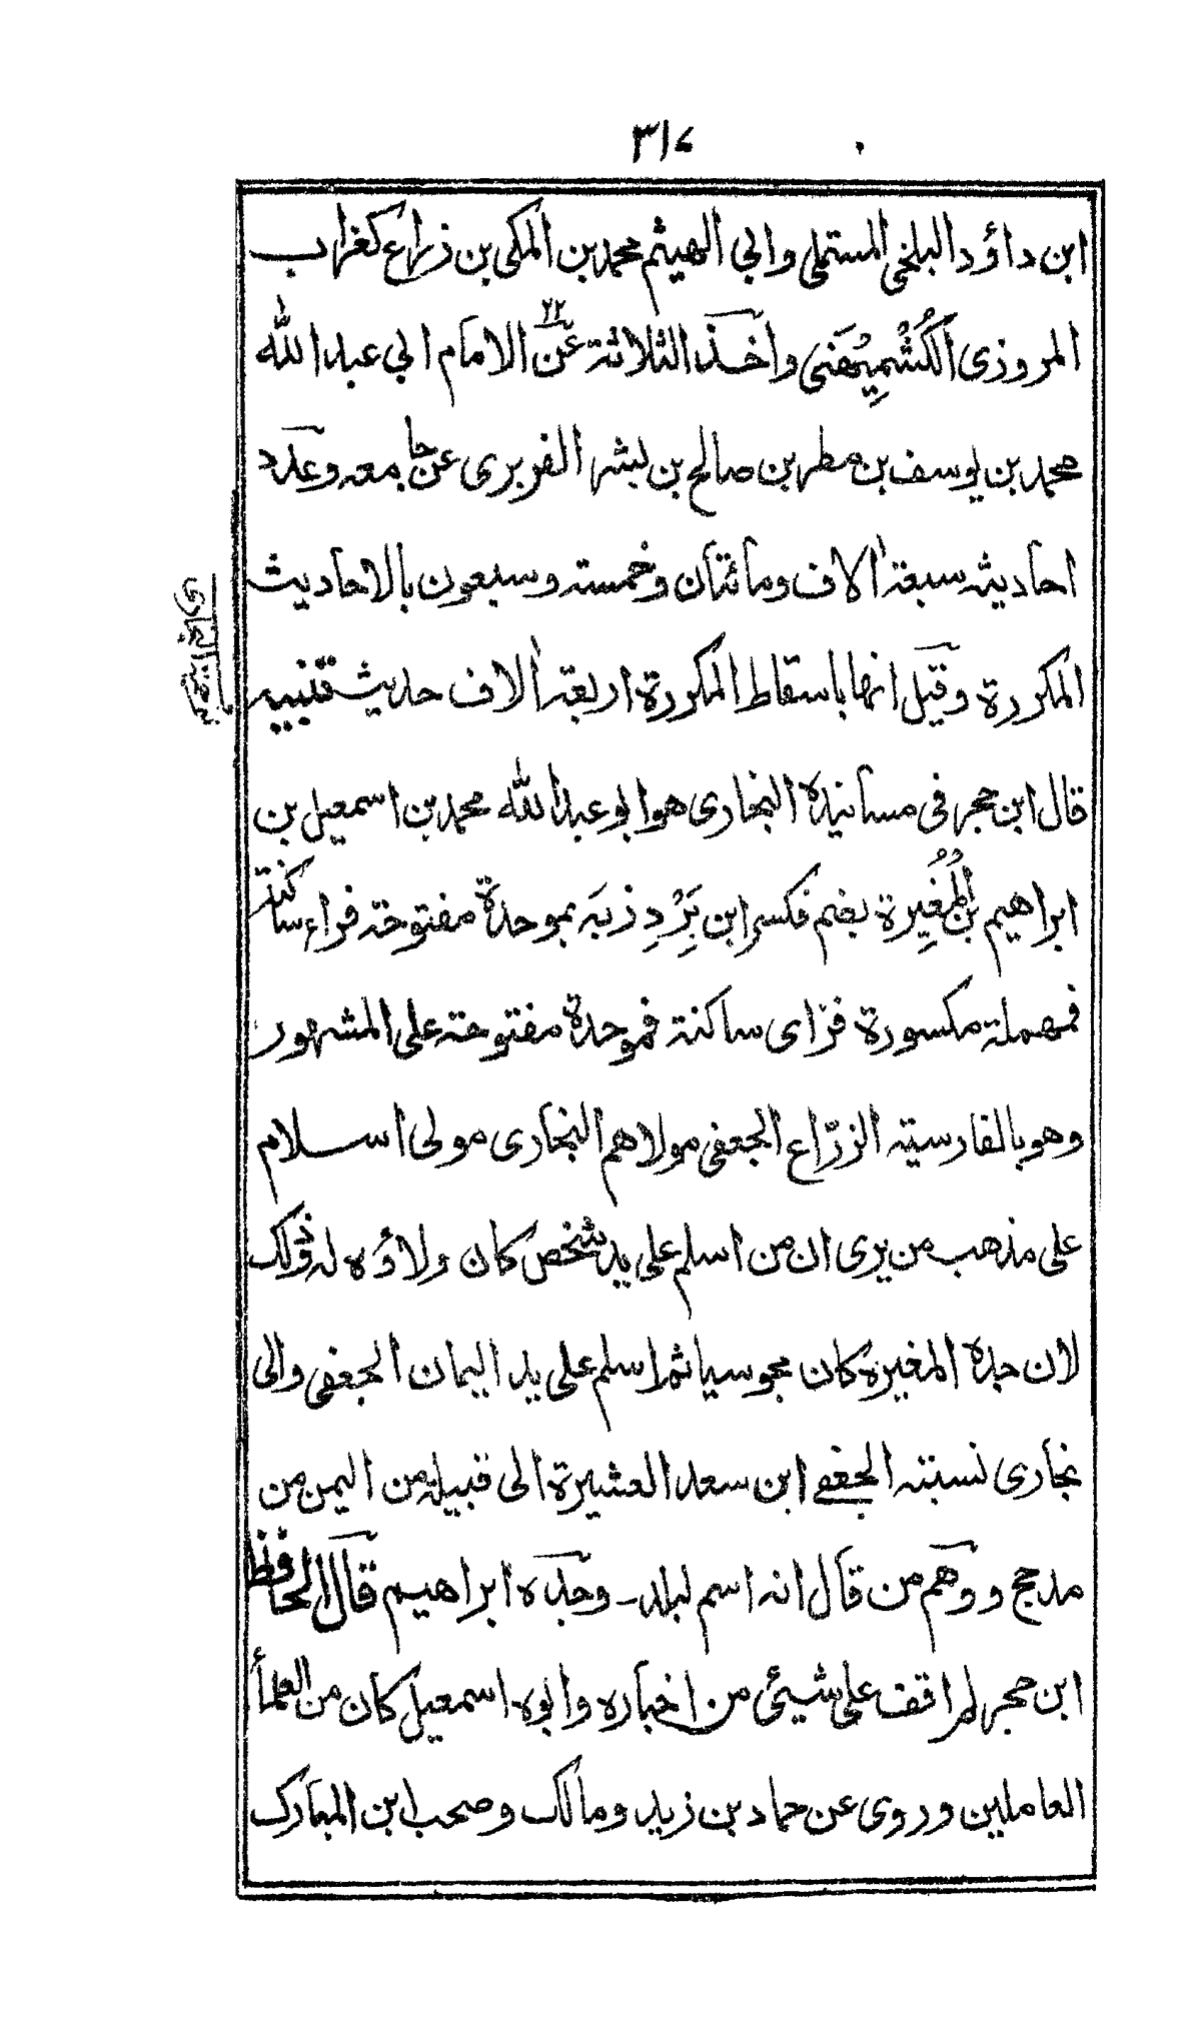 ٣١٧
ابن داؤد البلخي المستملي وابي الهيثم محمد بن المكي بن زراع كغراب
المروزى اَلْكُشْمِيْهَنى واخذ الثلاثة عن ٢٢ الامام ابي عبد الله
محمد بن يوسف بن مطر بن صالح بن بشر الفربرى عن جامعه وعدد
احاديثه سبعة اٰلاف ومائتان وخمسته وسبعون بالاحاديث
المكررة وقيل انها باسقاط المكررة اربعة اٰلاف حديث تنبيه
ترجمة البخارى
قال ابن حجر فى مسانيده البخارى هو ابو عبد الله محمد بن اسمعيل بن
ابراهيم بن المُغِيرة بضم فكسر ابن بَرْدِزبَه بموحدة مفتوحة فراء ساكنة
فمهملة مكسورة فزاى ساكنة فموحدة مفتوحة على المشهور
وهو بالفارسية الزرّاع الجعفى مولاهم البخارى مولى اسلام
على مذهب من يرى ان من اسلم على يد شخص كان ولاؤه له وذلك
لان جده المغيرة كان مجوسيا ثم اسلم على يد اليمان الجعفى والى
بخارى نسبته الجعفے ابن سعد العشيرة الى قبيلة من اليمن من
مدحج ووهم من قال انه اسم لبلد۔ وجده ابراهيم قال الحافظ
ابن حجر لم اقف على شيئ من اخباره وابوه اسمعيل كان من العلمأ
العاملين وروى عن حماد بن زيد ومالك وصحب ابن المبارك